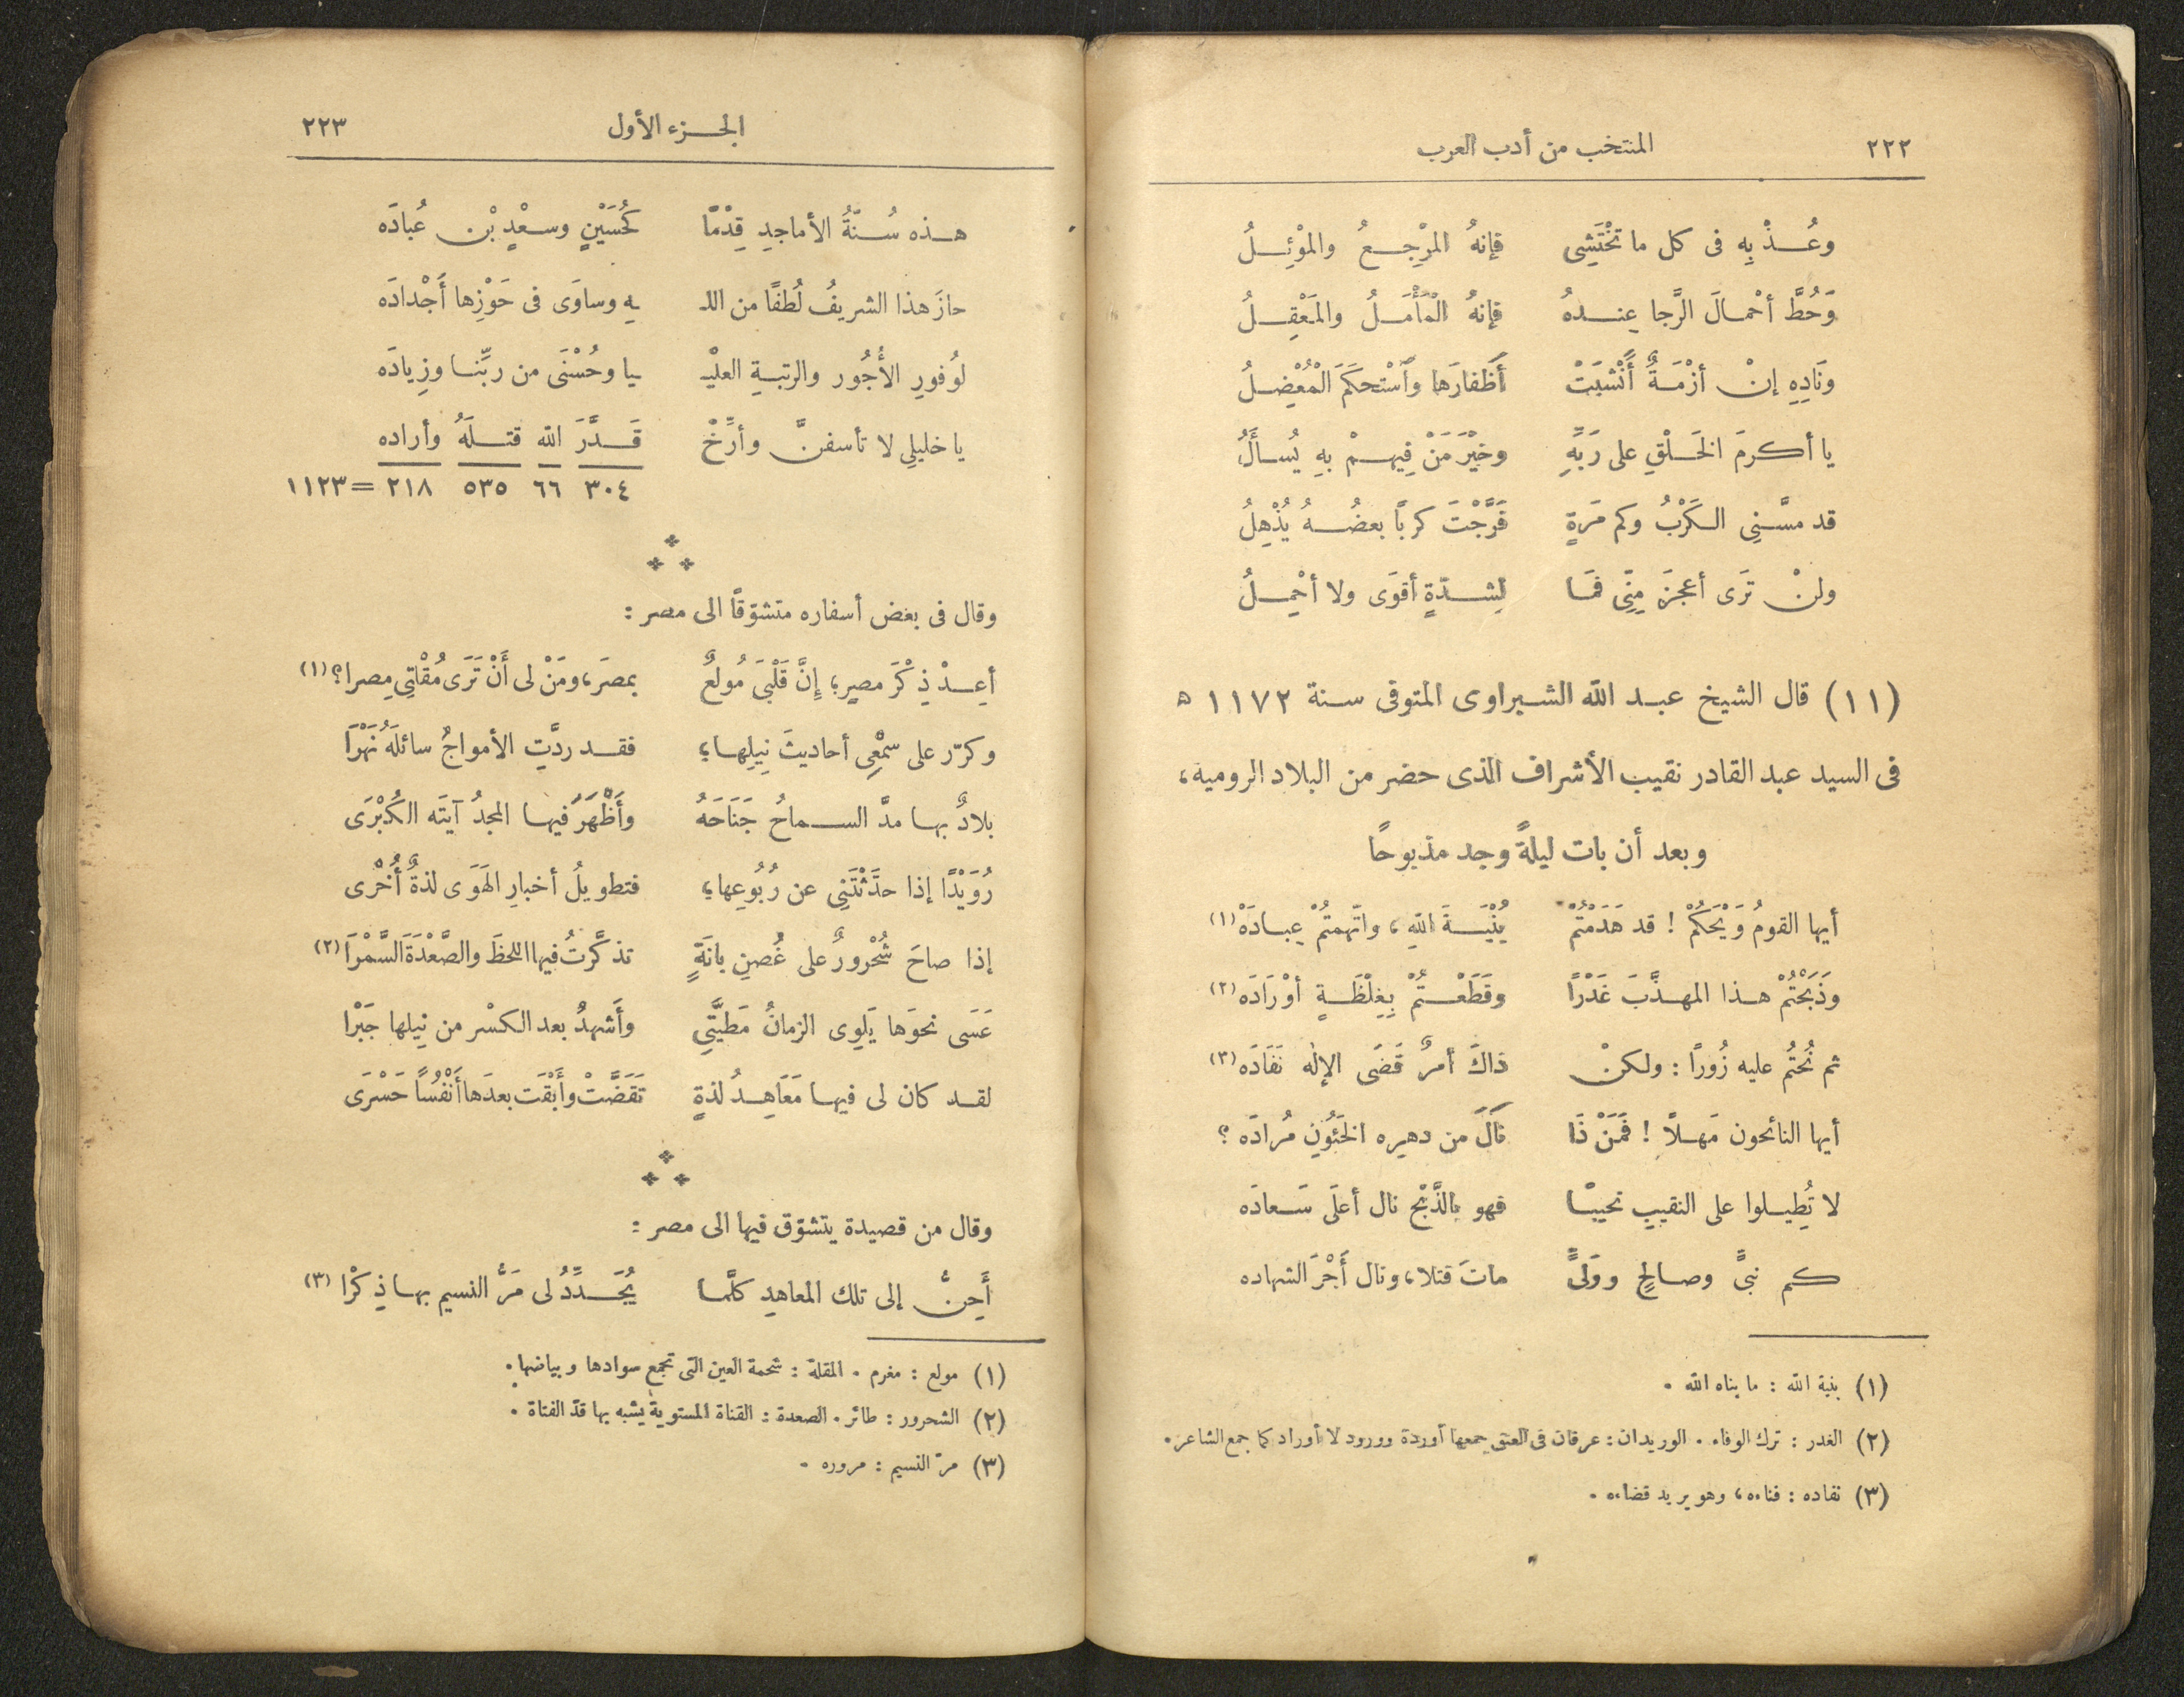 ٢٢٢ المنتخب من أدب العرب
وعُذْ بِهِ فى كل ما تَخْتَشِى فإنهُ المرْجِعُ والموْئِلُ
وَحُطَّ أحْمالَ الرَّجا عِندهُ فإنهُ الْمَأْمَلُ والمَعْقِلُ
ونَادِهِ إنْ أزْمَةٌ أَنْشَبَتْ أَظفارَها وٱسْتحكَمَ الْمُعْضِلُ
يا أكرمَ الخَلْقِ على رَبِّهِ وخيْرَ مَنْ فِيهمْ بهِ يُسأَلُ
قد مسَّنِى الكَرْبُ وكم مَرةٍ فَرَّجْتَ كربًا بعضُهُ يُذْهِلُ
ولنْ تَرَى أعجزَ مِنِّى فمَا لِشدّةٍ أقوَى ولا أحْمِلُ
(١١) قال الشيخ عبد الله الشبراوى المتوفى سنة ١١٧٢ ه
فى السيد عبد القادر نقيب الأشراف الذى حضر من البلاد الرومية،
وبعد أن بات ليلةً وجد مذبوحًا
أيها القومُ وَيْحَكُمْ ! قد هَدَمْتُمْ بُنْيَةَ اللهِ، واتَّهمتُمْ عِبادَهْ (١)
وَذَبَحْتُمْ هذا المهذَّبَ غَدْرًا وقَطَعْتُمْ بِغِلْظَةٍ أوْرَادَه (٢)
ثم نُحْتُمُ عليه زُورًا : ولكنْ ذَاكَ أمرٌ قَضَى الإلٰه نَفَادَه (٣)
أيها النائحون مَهلًا ! فَمَنْ ذَا نَالَ من دهرِه الخَئُونِ مُرادَه ؟
لا تُطِيلوا على النقيبِ نحيبًا فهو بالذَّبْحِ نال أعلَى سَعادَه
كم نبىٍّ وصالحٍ وولىٍّ ماتَ قتلا، ونال أَجْرَ الشهاده
(١) بنية الله : ما بناه الله .
(٢) الغدر : ترك الوفاء . الوريدان : عرقان فى العنق جمعها أوردة وورود لا أوراد كما جمع الشاعر .
(٣) نفاده : فناءه، وهو يريد قضاءه .
الجزء الأول ٢٢٣
هذه سُنّةُ الأماجدِ قِدْمًا كحُسَيْنٍ وسعْدِ بْن عُبادَه
حازَ هذا الشريفُ لُطفًا من الله ـهِ وساوَى فى حَوْزِها أَجْدادَه
لوُفورِ الأُجُور والرتبةِ العلْيـ ـيا وحُسْنَى من ربِّنا وزِيادَه
يا خليلِى لا تأسفنَّ وأرِّخْ قَدَّرَ الله قتلَهُ وأراده
٣٠٤ ٦٦ ٥٣٥ ٢١٨ = ١١٢٣
وقال فى بعض أسفاره متشوّقًا الى مصر :
أعِدْ ذِكْرَ مصرٍ، إِنَّ قَلْبِىَ مُولعٌ بمصرَ، ومَنْ لى أَنْ تَرَى مُقْلتِى مِصرا؟ (١)
وكرّر على سمْعِى أحاديثَ نِيلِها، فقد ردَّتِ الأمواجُ سائلَهُ نَهْرَا
بلادٌ بها مدَّ السماحُ جَنَاحَهُ وأَظْهَرَ فيها المجدُ آيتَه الكُبْرَى
رُوَيْدًا إذا حدَّثْتَنِى عن رُبُوعِها، فتطويلُ أخبارِ الهَوَى لذةٌ أُخْرى
إذا صاحَ شُحْرورٌ على غُصنِ بانَةٍ تذكَّرتُ فيها اللحظَ والصَّعْدَةَ السَّمْرَا (٢)
عَسَى نحوَها يَلوِى الزمانُ مَطيَّتِى وأَشهدُ بعد الكسْر من نِيلها جَبْرا
لقد كان لى فيها مَعَاهِدُ لذةٍ تَقَضَّتْ وأَبْقَت بعدَها أَنْفُسًا حَسْرَى
وقال من قصيدة يتشوّق فيها الى مصر :
أَحِنُّ إلى تلك المعاهدِ كلَّما يُجَدِّدُ لى مَرُّ النسيم بها ذِكْرا (٣)
(١) مولع : مغرم . المقلة : شحمة العين التى تجمع سوادها وبياضها .
(٢) الشحرور : طائر . الصعدة : القناة المستوية يشبه بها قدّ الفتاة .
(٣) مرّ النسيم : مروره .